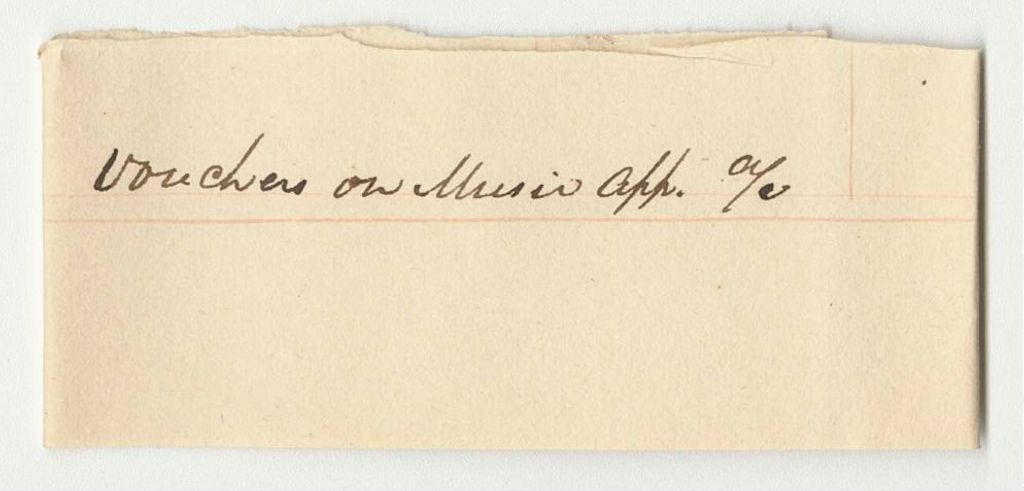 Vouchers on Music App. a/c